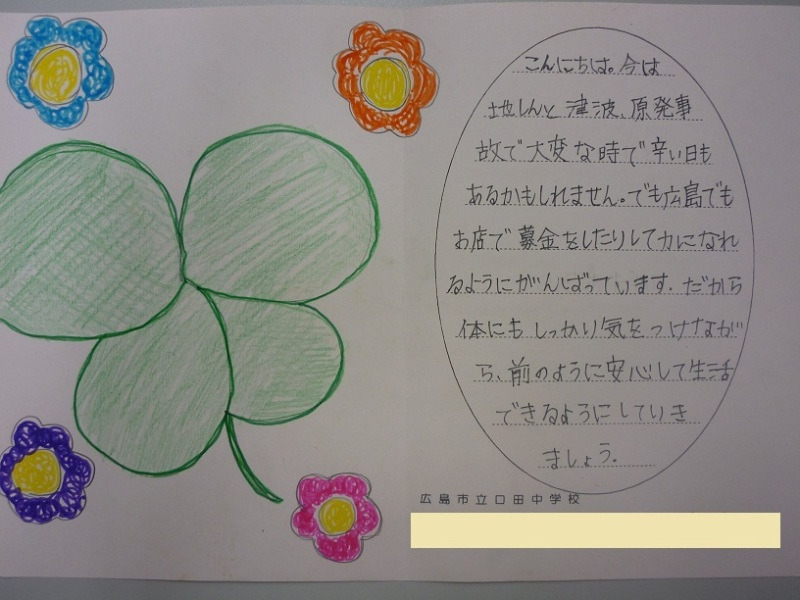 こんにちは。今は
地しんと津波、原発事
故で大変な時で辛い日も
あるかもしれません。でも広島でも
お店で募金をしたりして力になれ
るようにがんばっています。だから
体にもしっかり気をつけなが
ら、前のように安心して生活
できるようにしていき
ましょう。
広島市立口田中学校